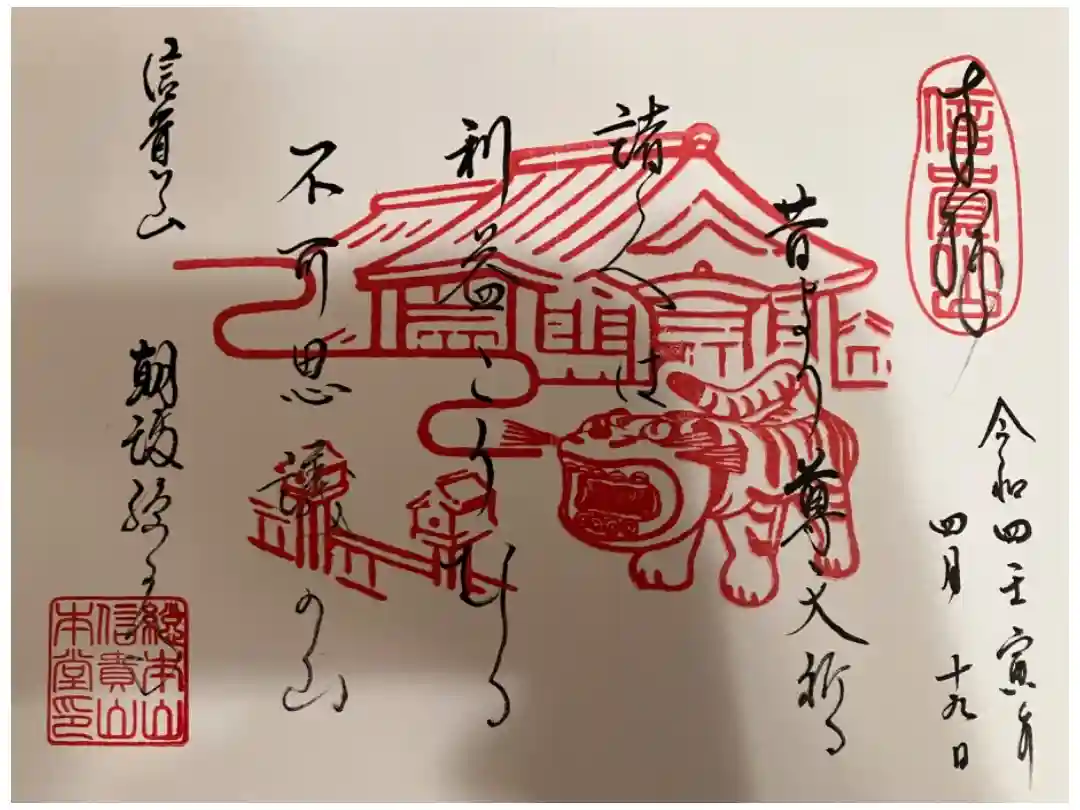 奉拝
信貴山
令和四壬寅年
四月十九日
昔より尊 人祈る
諸 は
利益こうむる
不可思議の山
信貴山
朝護孫子
總本山
信貴山
本堂印